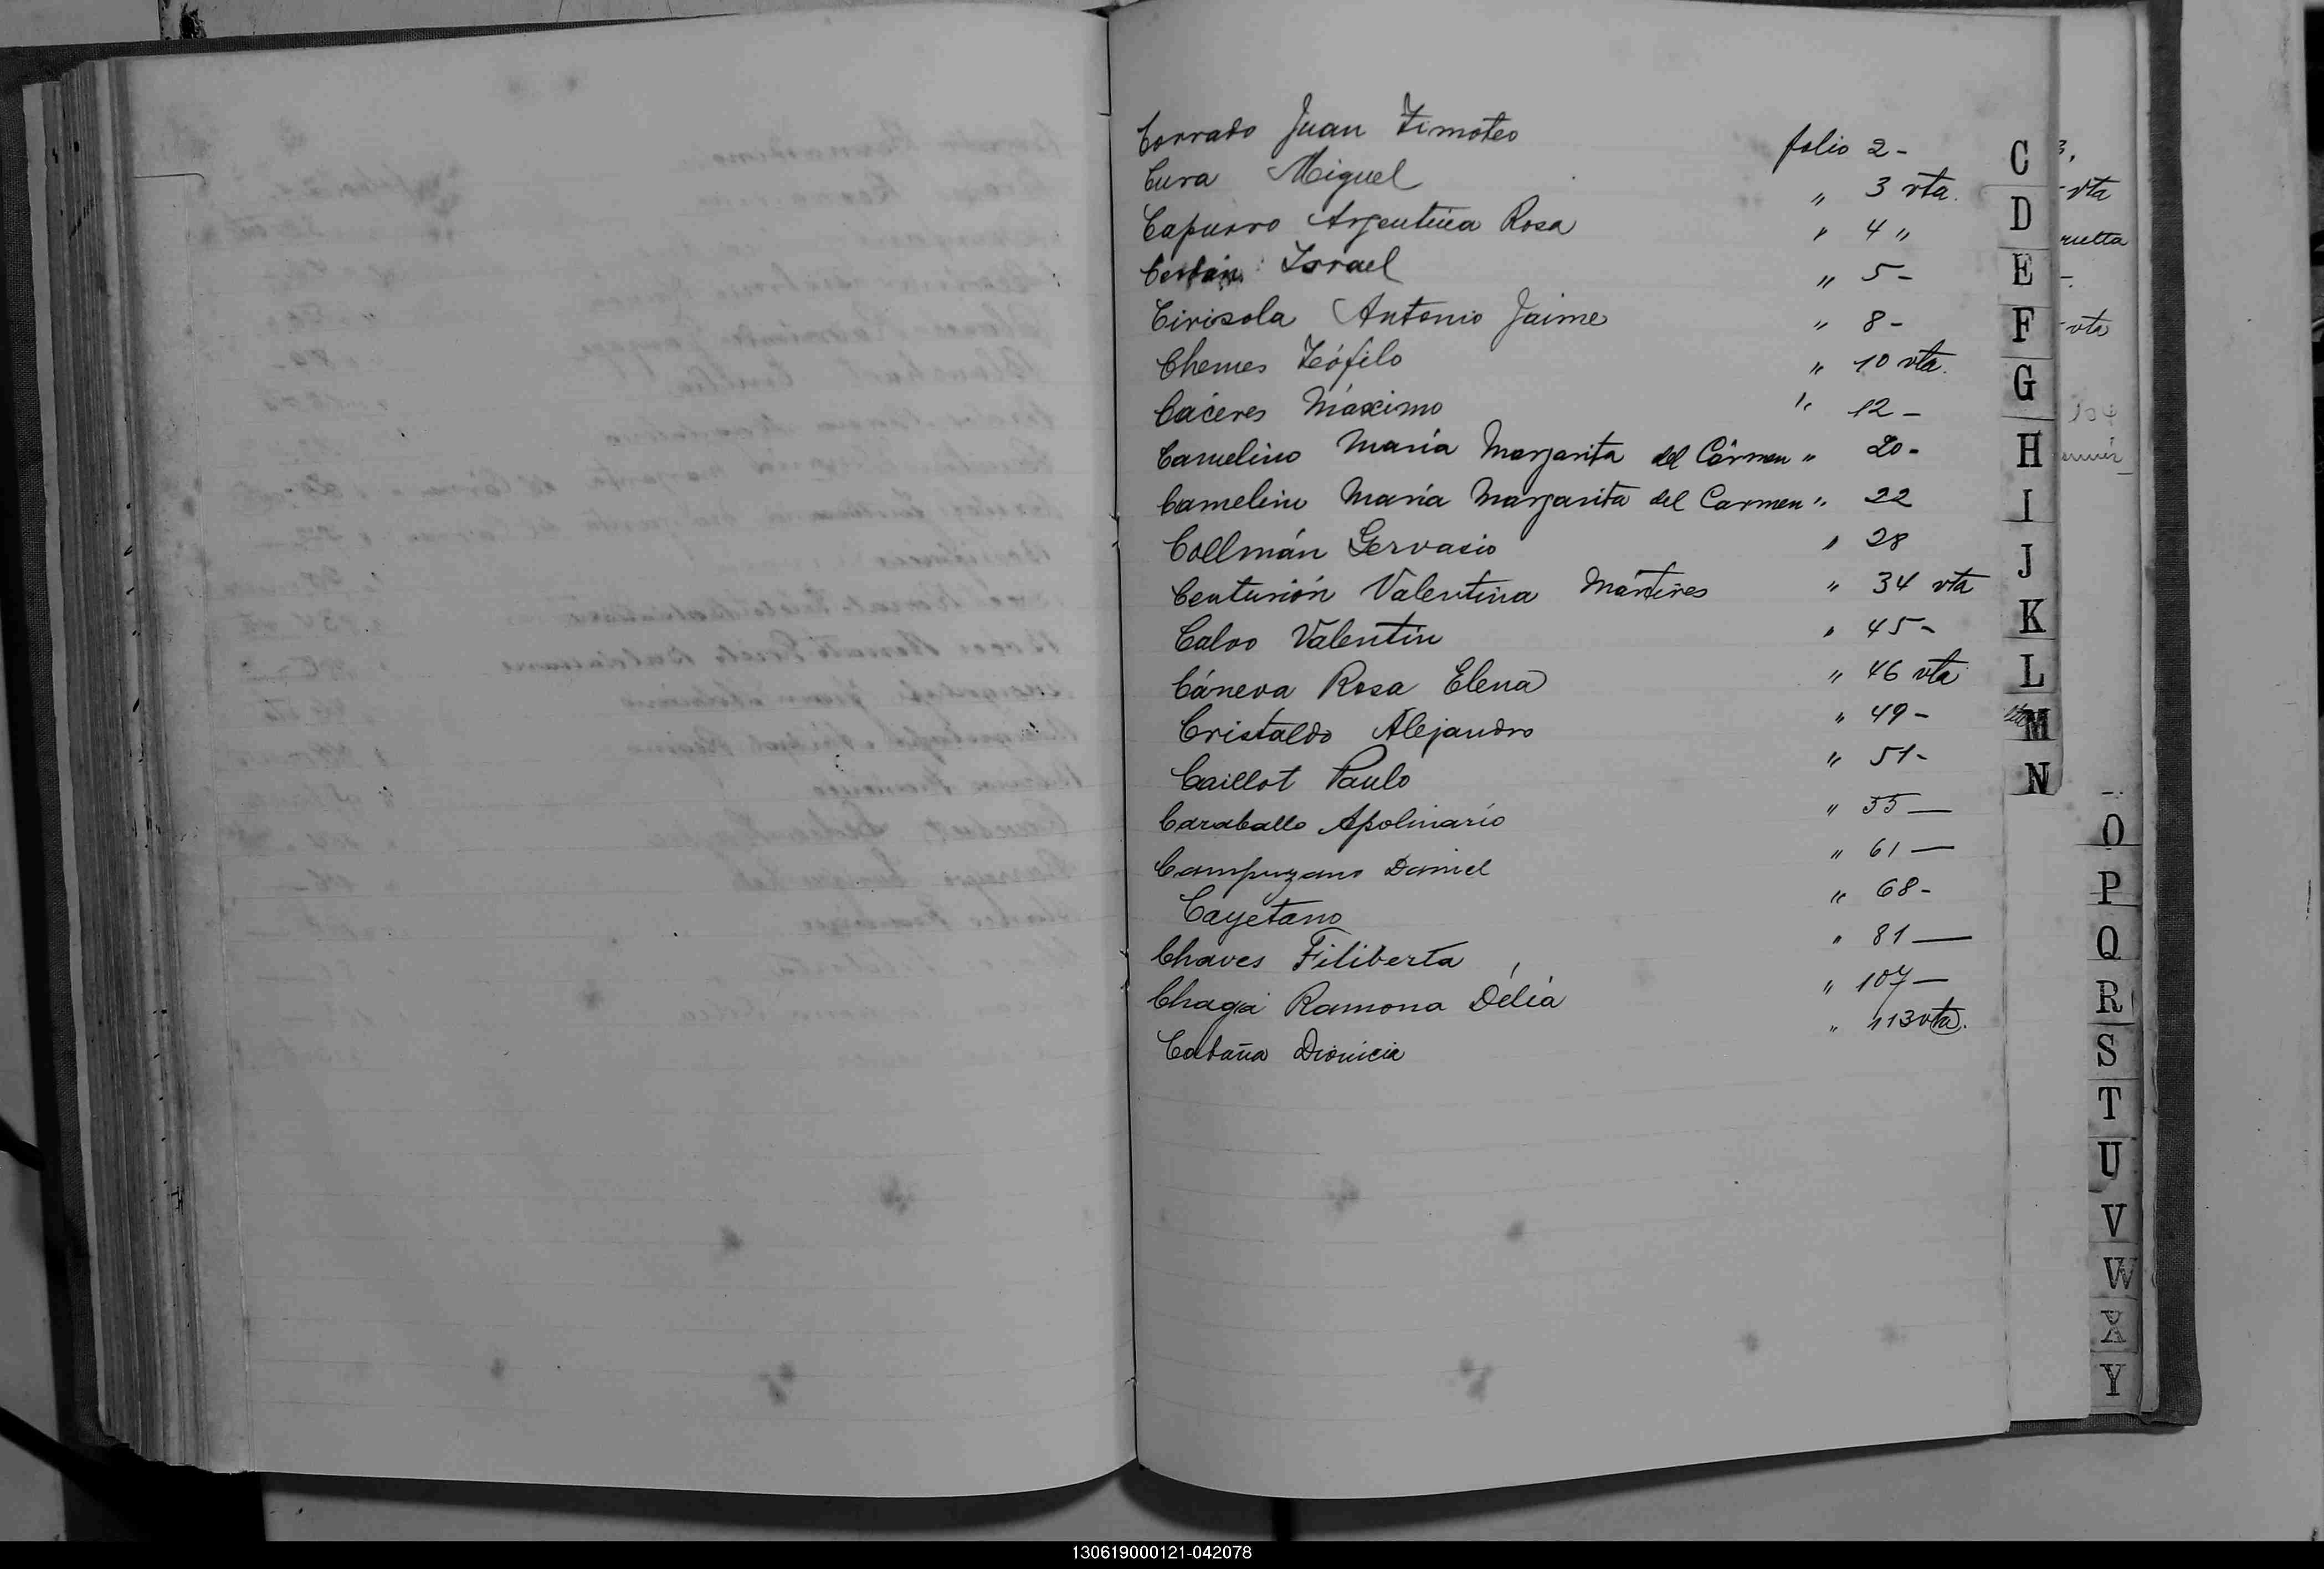 Corrado Juan Timoteo folio 2-
Cura Miguel " 3 vta.
Capurro Argentina Rosa " 4 "
Israel " 5-
Cirisola Antonio Jaime " 8-
Chemes Teófilo " 10 vta.
Cáceres Máximo " 12-
Camelino María Margarita del Cármen " 20-
Camelino María Margarita del Carmen " 22
Collmán Gervasio " 28
Centurión Valentina Mártires " 34 vta
Calvo Valentín " 45-
Cáneva Rosa Elena " 46 vta
Cristaldo Alejandro " 49-
Caillot Paulo " 51-
Caraballo Apolinario " 55—
Campuzano Daniel " 61—
Cayetano " 68-
Chaves Filiberta " 81—
Chaga Ramona Délia " 107—
Cabaña Dionicia " 113 vta.
C
D
E
F
G
H
I
J
K
L
M
N
O
P
Q
R
S
T
U
V
W
X
Y
vta
vta
130619000121-042078